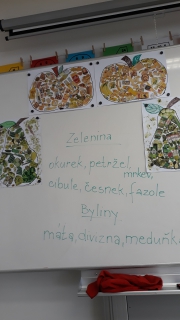 Zelenina
okurek, petržel, mrkev,
cibule, česnek, fazole
Byliny
máta, divizna, meduňka